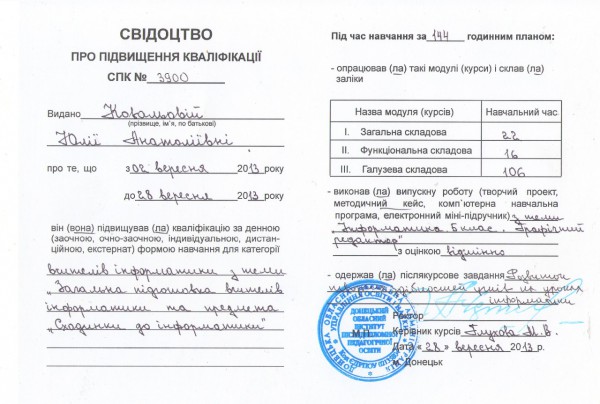 СВІДОЦТВО
ПРО ПІДВИЩЕННЯ КВАЛІФІКАЦІЇ
СПК № 3900
Видано Ковальовій
(прізвище, ім'я, по батькові)
Юлії Анатоліївні
про те, що з 02 вересня 2013 року
до 28 вересня 2013 року
він (вона) підвищував (ла) кваліфікацію за денною
(заочною, очно-заочною, індивідуальною, дистан-
ційною, екстернат) формою навчання для категорії
вчителів інформатики з теми
„Загальна підготовка вчителів
інформатики та предмета
„Сходинки до інформатики"
Під час навчання за 144 годинним планом:
- опрацював (ла) такі модулі (курси) і склав (ла)
заліки
Назва модуля (курсів) Навчальний час
I. Загальна складова 22
II. Функціональна складова 16
III. Галузева складова 106
- виконав (ла) випускну роботу (творчий проект,
методичний кейс, комп`ютерна навчальна
програма, електронний міні-підручник) з теми
„Інформатика 5 клас. Графічний
редактор"
з оцінкою відмінно
- одержав (ла) післякурсове завдання Розвиток
учнів на уроках
інформатики
Ректор
М.П.
Керівник курсів Глухова М.В.
Дата « 28 » вересня 2013 р.
м. Донецьк
ДОНЕЦЬКИЙ
ОБЛАСНИЙ
ІНСТИТУТ
ПІСЛЯДИПЛОМНОЇ
ПЕДАГОГІЧНОЇ
ОСВІТИ